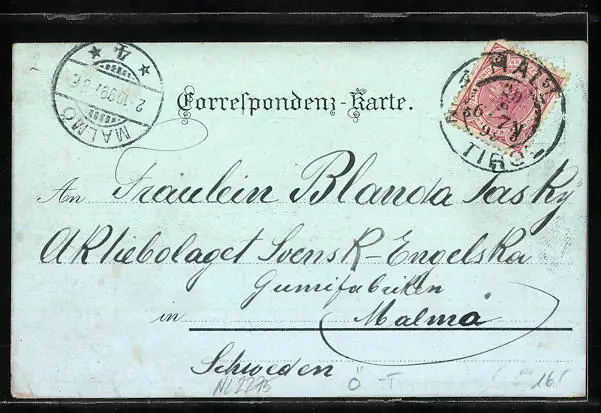 MALMÖ
2.10.99.
Correspondenz-Karte.
MAIS
TIROL
An Fräulein Blanda Sasky
Aktiebolaget Svensk-Engelska
Gumifabriken
in Malmö
Schweden
NL 2275 Ö-T 16.